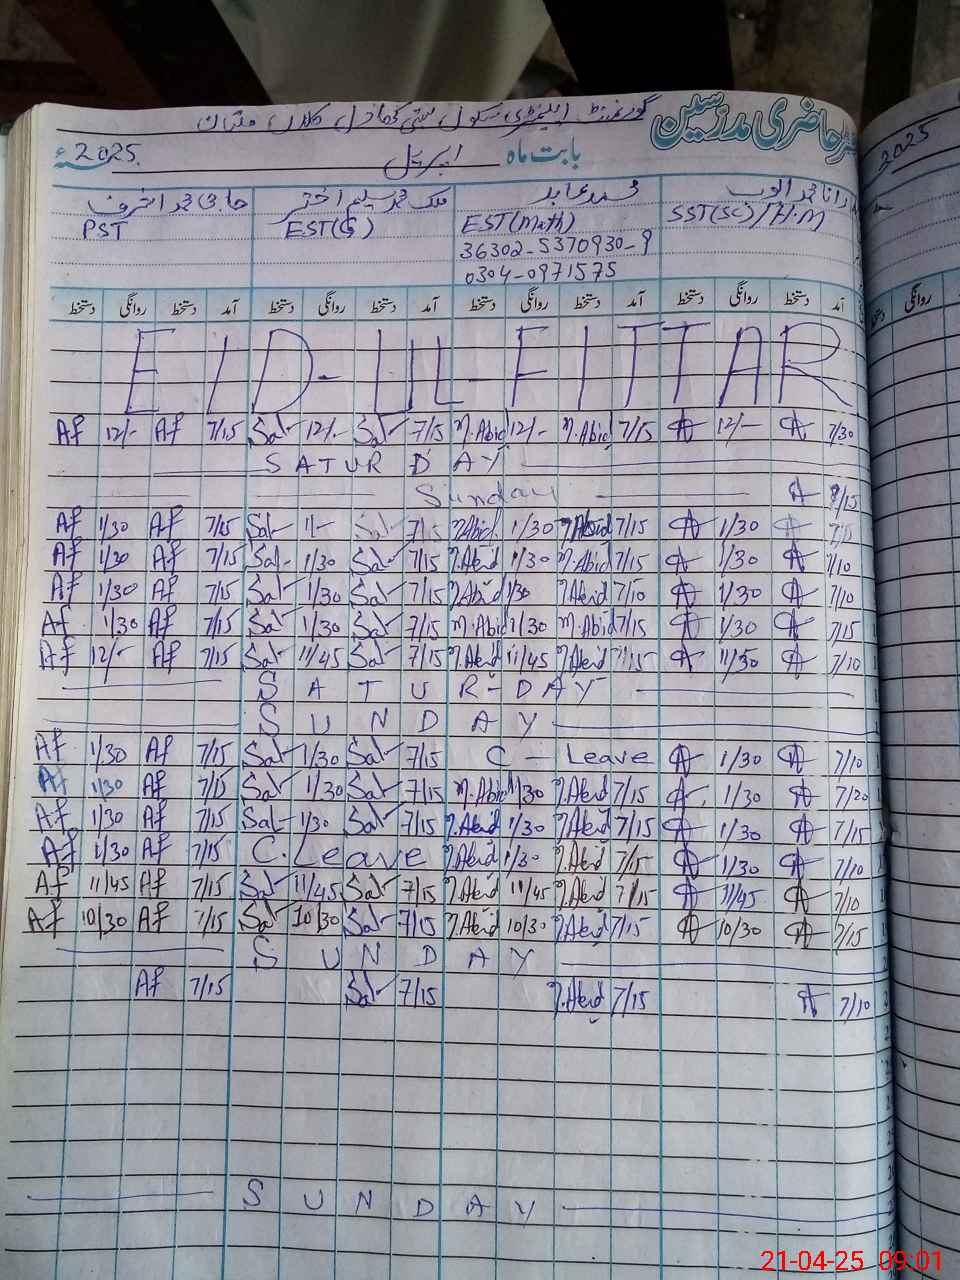 رجسٹر حاضری مدرسین
گورنمنٹ ایلیمنٹری سکول
بابت ماہ اپریل 2025ء
2025
رانا محمد ایوب محمد عابد ملک محمد سلیم اختر حاجی محمد اشرف
SST(SC)/H.M EST(Math) EST(G) PST
36302-5370930-9
0304-0971575
آمد دستخط روانگی دستخط آمد دستخط روانگی دستخط آمد دستخط روانگی دستخط آمد دستخط روانگی دستخط
EID-UL-FITTAR
Af 12/- Af 7/15 Sal 12/- Sal 7/15 M.Abid 12/- M.Abid 7/15 12/- 7/30
SATURDAY
Sunday
Af 1/30 Af 7/15 Sal 1/- Sal 7/15 M.Abid 1/30 M.Abid 7/15 1/30
Af 1/30 Af 7/15 Sal 1/30 Sal 7/15 M.Abid 1/30 M.Abid 7/15 1/30 7/10
Af 1/30 Af 7/15 Sal 1/30 Sal 7/15 M.Abid 1/30 M.Abid 7/10 1/30 7/10
Af 1/30 Af 7/15 Sal 1/30 Sal 7/15 M.Abid 1/30 M.Abid 7/15 1/30 7/15
Af 12/- Af 7/15 Sal 11/45 Sal 7/15 M.Abid 11/45 M.Abid 7/15 11/30 7/10
SATUR-DAY
SUNDAY
Af 1/30 Af 7/15 Sal 1/30 Sal 7/15 C - Leave 1/30 7/10
Af 1/30 Af 7/15 Sal 1/30 Sal 7/15 M.Abid 1/30 M.Abid 7/15 1/30 7/20
Af 1/30 Af 7/15 Sal 1/30 Sal 7/15 M.Abid 1/30 M.Abid 7/15 1/30 7/15
Af 1/30 Af 7/15 C.Leave M.Abid 1/30 M.Abid 7/15 1/30 7/10
Af 11/45 Af 7/15 Sal 11/45 Sal 7/15 M.Abid 11/45 M.Abid 7/15 11/45 7/10
Af 10/30 Af 7/15 Sal 10/30 Sal 7/15 M.Abid 10/30 M.Abid 7/15 10/30 7/15
SUNDAY
Af 7/15 Sal 7/15 M.Abid 7/15 7/10
SUNDAY
21-04-25 09:01